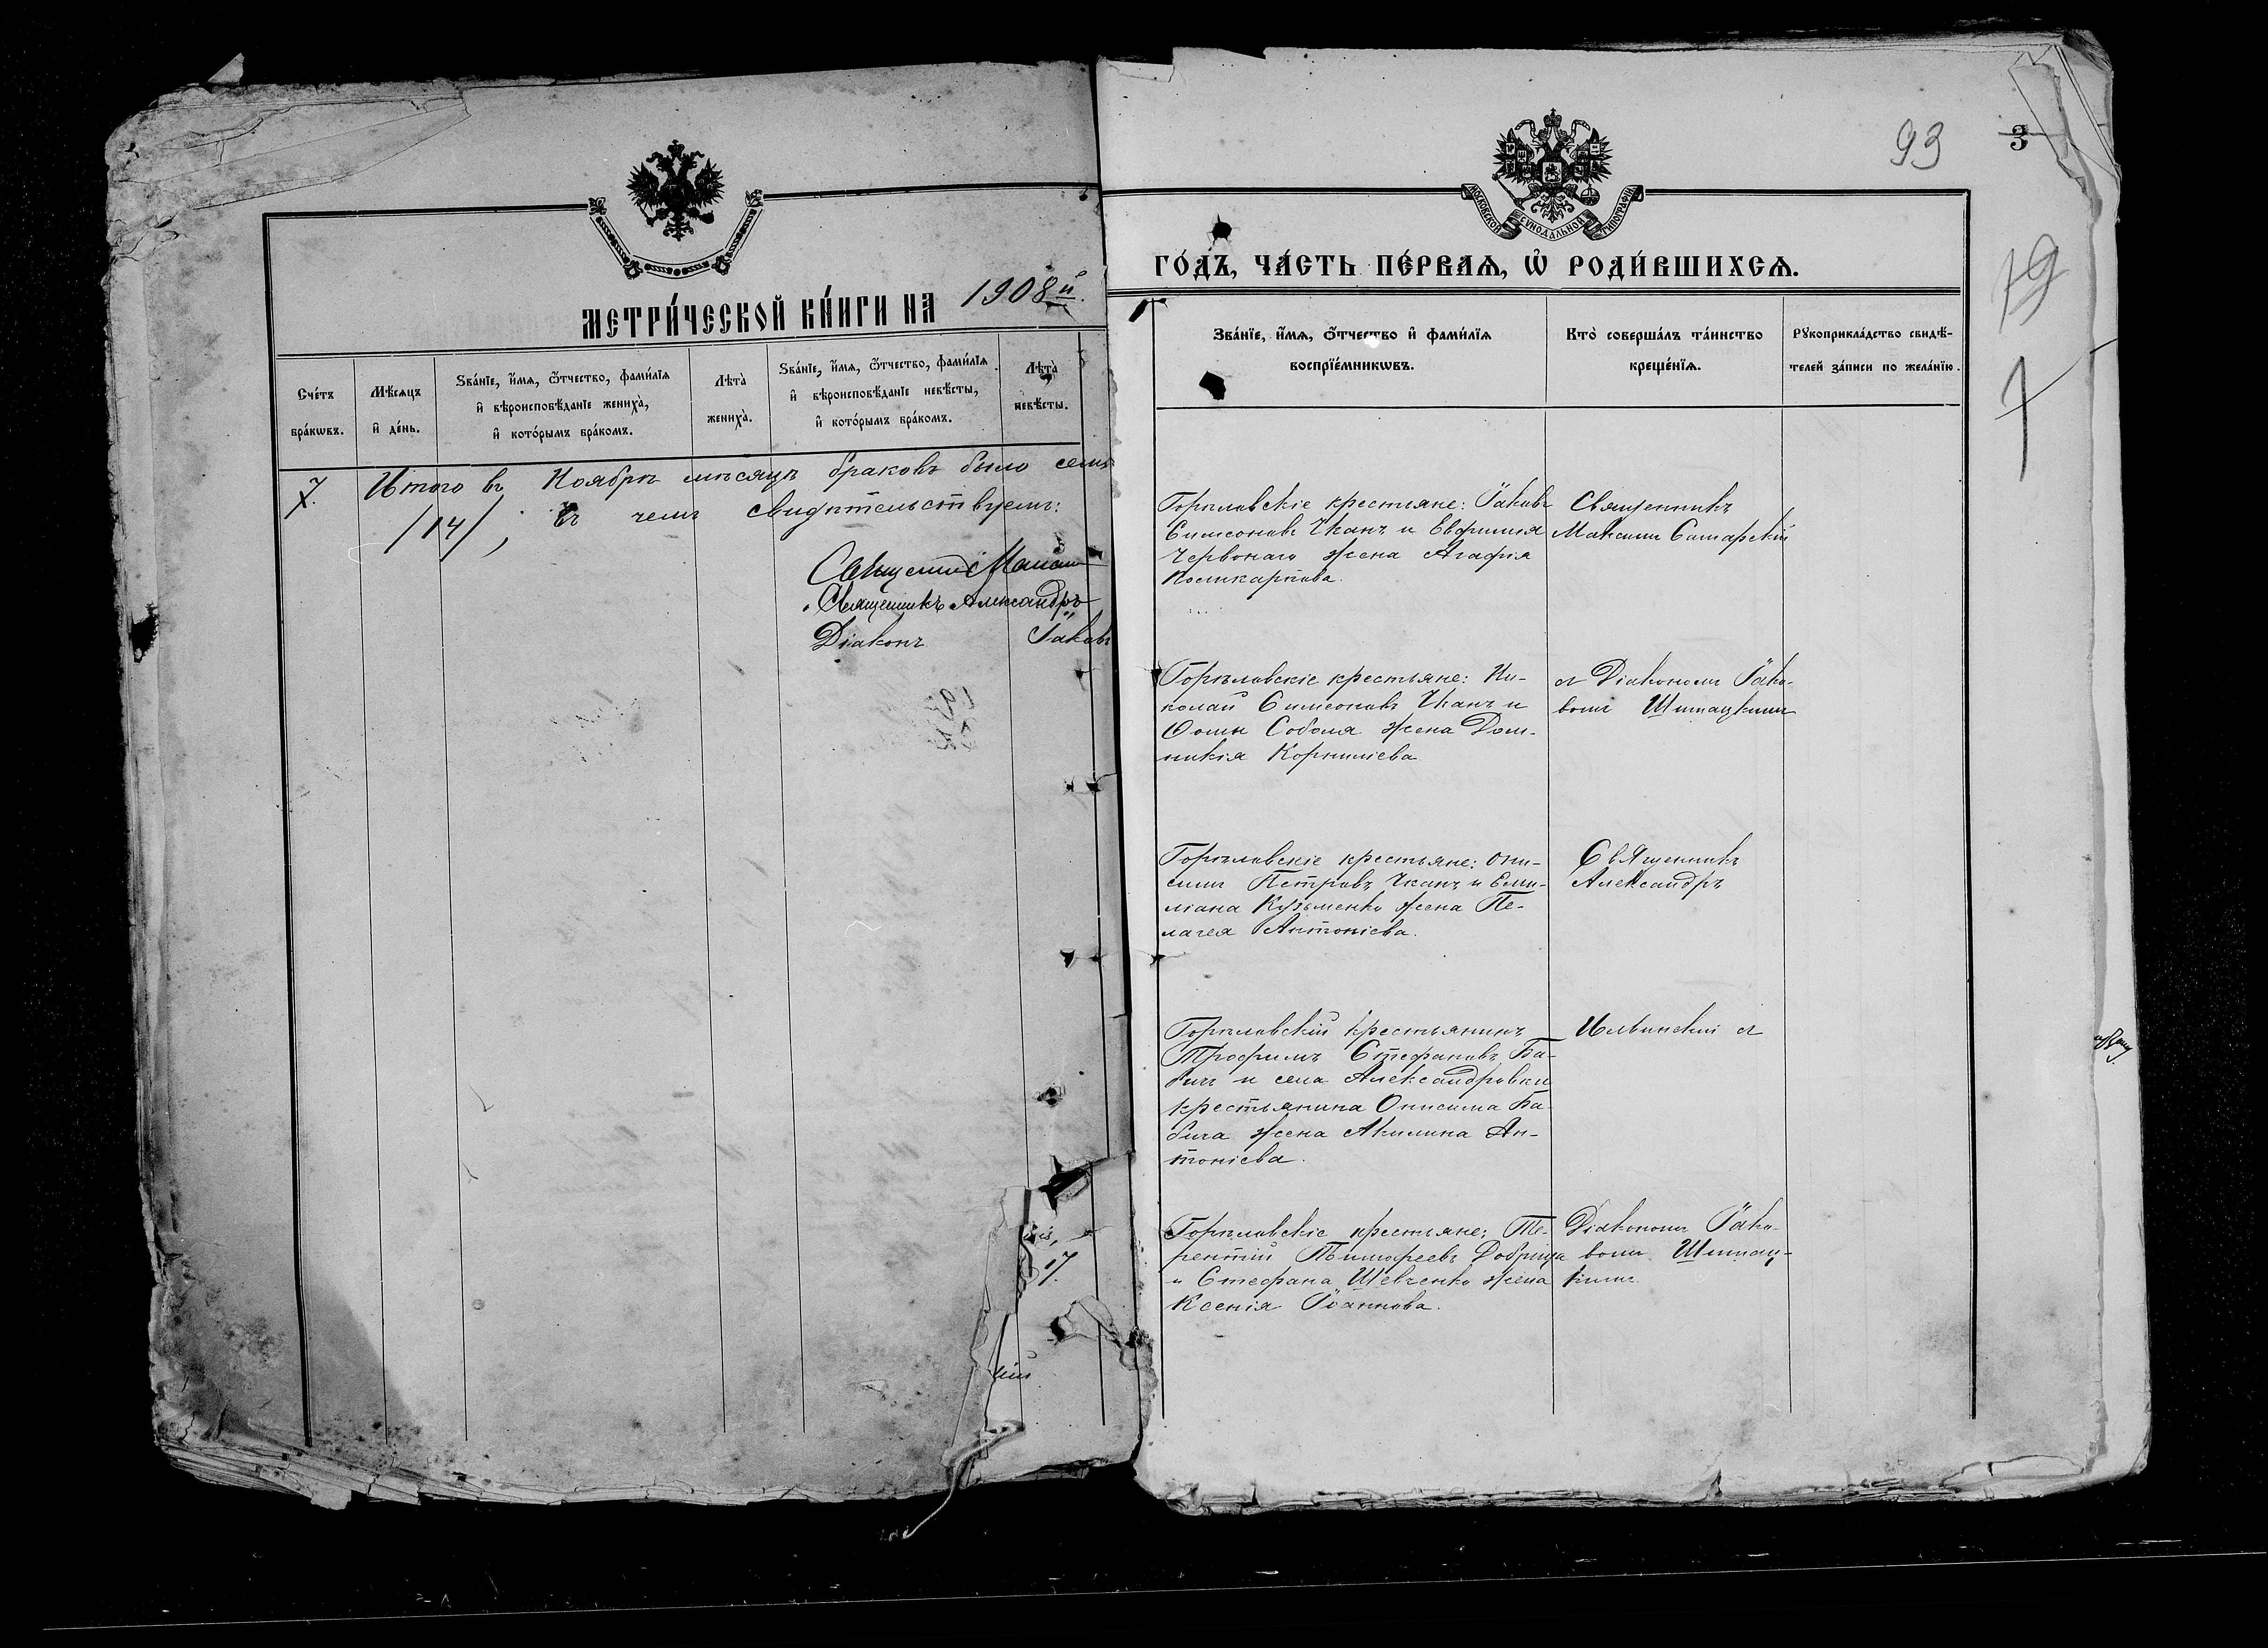 МЕТРИ́ЧЕСКОЙ КНИ́ГИ НА 1908й.
Сче́тъ бра́кѡвъ.
Мѣ́сяцъ и҆ де́нь.
Зва́нїе, и҆́мѧ, ѻ҆́тчество, фами́лїѧ и҆ вѣроисповѣ́данїе жениха̀, и҆ кото́рымъ бра́комъ.
Лѣта̀ жениха̀.
Зва́нїе, и҆́мѧ, ѻ҆́тчество, фами́лїѧ и҆ вѣроисповѣ́данїе невѣ́сты, и҆ кото́рымъ бра́комъ.
Лѣта̀ невѣ́сты.
7. Итого въ Ноябрѣ мѣсяцѣ браковъ было семь
/14/; въ чемъ свидѣтельствуемъ:
Священникъ Александръ
Діаконъ Іаковъ
93
3
МОСКОВСКОЙ СУНОДАЛЬНОЙ ТИПОГРАФІИ
ГО́ДЪ, ЧА́СТЬ ПЕ́РВАѦ, Ѡ҆ РОДИ́ВШИХСѦ.
19
7
Зва́нїе, и҆́мѧ, ѻ҆́тчество и҆ фами́лїѧ
воспрїе́мникѡвъ.
Кто̀ соверша́лъ та́инство
креще́нїѧ.
Рꙋкоприкла́дство свидѣ́-
телей за́писи по жела́нїю.
Горѣловскіе крестьяне: Іаковъ
Симеоновъ Чканъ и Евфимія
Червонаго жена Агафія
Поликарпова.
Священникъ
Максимъ Самарскій
Горѣловскіе крестьяне: Ни-
колай Симеоновъ Чканъ и
Ѳомы Соболя жена Дом-
никія Корниліева
съ Діакономъ Іако-
вомъ Шимацкимъ
Горѣловскіе крестьяне: Они-
симъ Петровъ Чканъ и Еми-
ліана Кузьменко жена Пе-
лагея Антоніева.
Священникъ
Александръ
Горѣловскій крестьянинъ
Трофимъ Стефановъ Ба-
бичъ и села Александровки
крестьянина Онисима Ба-
бича жена Акилина Ан-
тоніева.
Ильинскій съ
Горѣловскіе крестьяне: Те-
рентій Тимофеевъ Добрица
и Стефана Шевченко жена
Ксенія Іоаннова.
Діакономъ Іако-
вомъ Шимац-
кимъ.